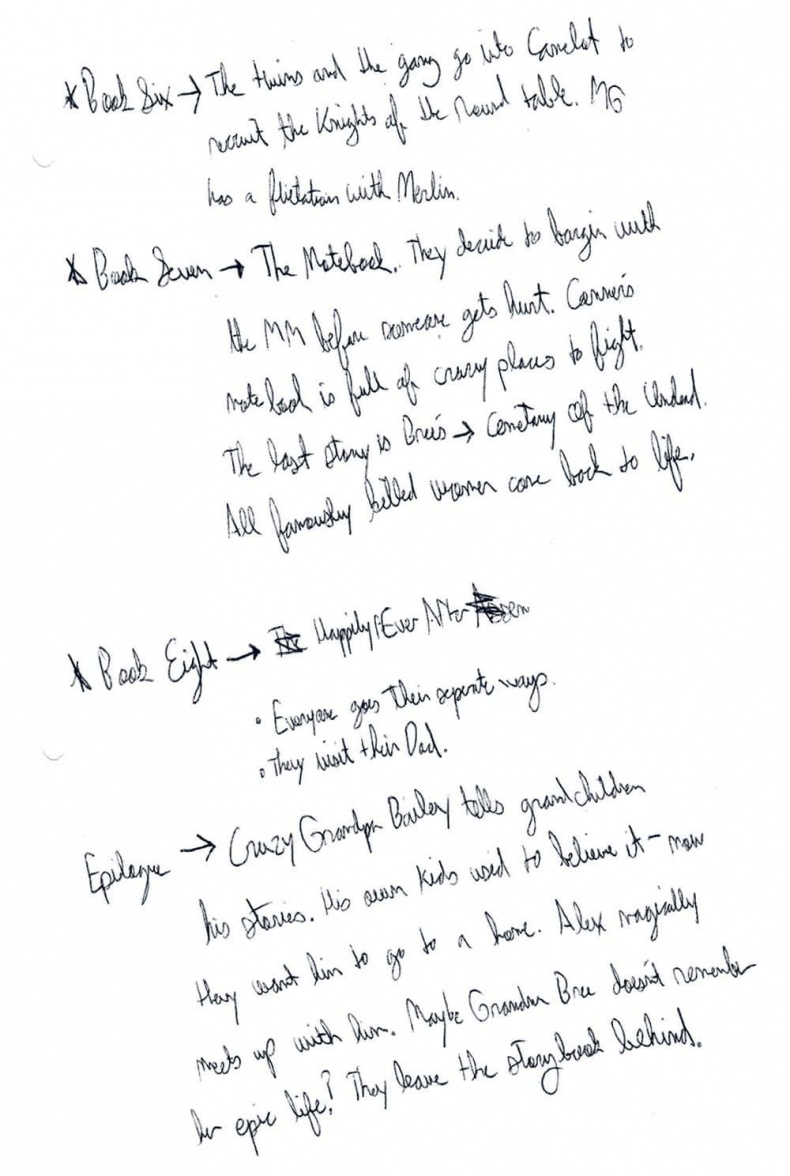 * Book Six → The twins and the gang go into Camelot to
recruit the Knights of the Round table. MG
has a flirtation with Merlin.
* Book Seven → The Notebook. They decide to bargin with
the MM before someone gets hurt. Conner's
notebook is full of crazy places to fight.
The last story is Bree's → Cemetary of the Undead.
All famously killed women come back to life.
* Book Eight → Happily Ever After
• Everyone goes their separate ways.
• They visit their Dad.
Epilogue → Crazy Grandpa Bailey tells grandchildren
his stories. His own kids used to believe it – now
they want him to go to a home. Alex magically
meets up with him. Maybe Grandma Bree doesn't remember
her epic life? They leave the storybook behind.